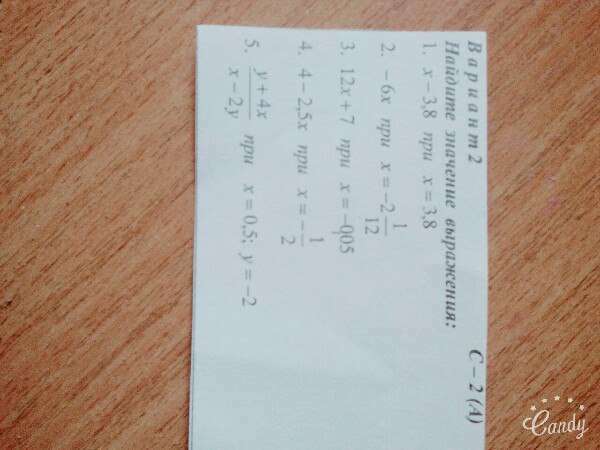 Вариант 2 С – 2 (А)
Найдите значение выражения:
1. x – 3,8 при x = 3,8
2. – 6x при x = –2 1/12
3. 12x + 7 при x = –0,05
4. 4 – 2,5x при x = – 1/2
5. (y + 4x)/(x – 2y) при x = 0,5; y = –2
Candy